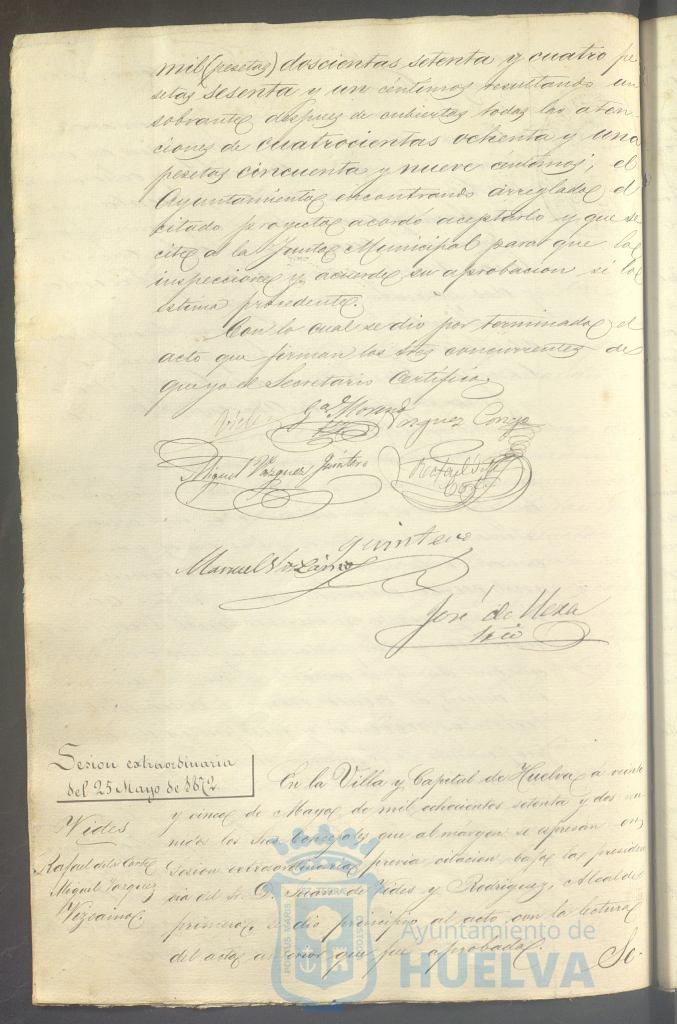 mil (pesetas) doscientas setenta y cuatro pe
setas sesenta y un céntimos resultando un
sobrante despues de cubiertas todas las aten-
ciones de cuatrocientas ochenta y una
pesetas cincuenta y nueve centimos; el
Ayuntamiento encontrando arreglado el
citado proyecto acordó aceptarlo y que se
cite a la Junta Municipal para que lo
inspeccione y acuerde su aprobacion si lo
estima procedente.
Con lo cual se dio por terminado el
acto que firman los Sres concurrentes de
que yo el Secretario Certifico
Moreno
Vazquez
Miguel Vazquez Quintero
Rafael
Quintero
Manuel Vizcaino
José de
Srio
Sesion extraordinaria
del 25 Mayo de 1872.
En la Villa y Capital de Huelva á veinte
y cinco de Mayo de mil ochocientos setenta y dos reu-
nidos los Sres. Concejales que al margen se espresan en
Sesion extraordinaria previa citacion bajo la presiden
cia del Sr. D. Juan de Vides y Rodriguez, Alcalde
primero, se dio principio al acto con la lectura
del acta anterior que fue aprobada.
Se
Vides
Rafael de la Corte
Miguel Vazquez
Vizcaino
PORTUS MARIS
ET TERRAE
CUSTODIA
Ayuntamiento de
HUELVA